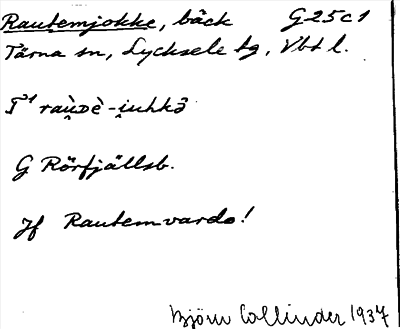 Rautemjokke, bäck G25c1
Tärna sn, Lycksele lg, Vbt l.
raùᴅè-i̯uhkə̑
G Rörfjällsb.
Jf Rautemvardo!
Björn Collinder 1937